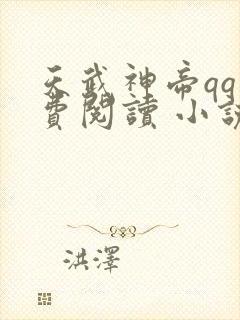 天武神帝qq
費閱讀 小說
洪澤